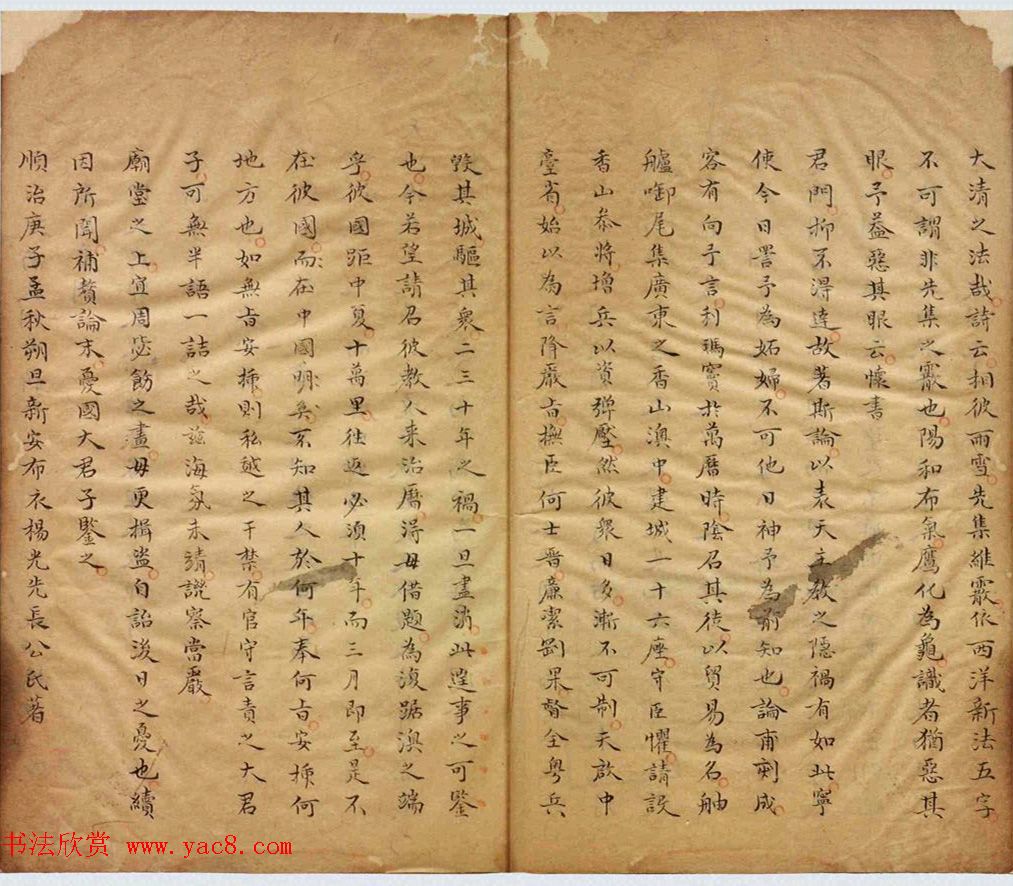 大清之法哉詩云相彼雨雪先集維霰依西洋新法五字
不可謂非先集之霰也陽和布氣鷹化為鳩識者猶惡其
眼予益惡其眼云懷書
君門抑不得達故著斯論以表天主教之隱禍有如此寧
使今日詈予為妬婦不可他日神予為前知也論甫剞成
客有向予言利瑪竇於萬曆時陰召其徒以貿易為名舳
艫啣尾集廣東之香山澳中建城一十六座守臣懼請設
香山參將增兵以資彈壓然彼眾日多漸不可制天啟中
臺省始以為言降嚴旨撫臣何士晉廉潔剛果督全粵兵
毀其城驅其衆二三十年之禍一旦盡消此往事之可鑒
也今若望請召彼教人来治曆得毋借題為復踞澳之端
乎彼國距中夏十萬里往返必須十年而三月即至是不
在彼國而在中國明矣不知其人於何年奉何旨安插何
地方也如無旨安插則私越之干禁有官守言責之大君
子可無半語一詰之哉茲海氛未靖譏察當嚴
廟堂之上宜周宻飭之畫毋更揖盗自詒後日之憂也續
因所聞補贅論末憂國大君子鑒之
順治庚子孟秋朔旦新安布衣楊光先長公氏著
书法欣赏 www.yac8.com